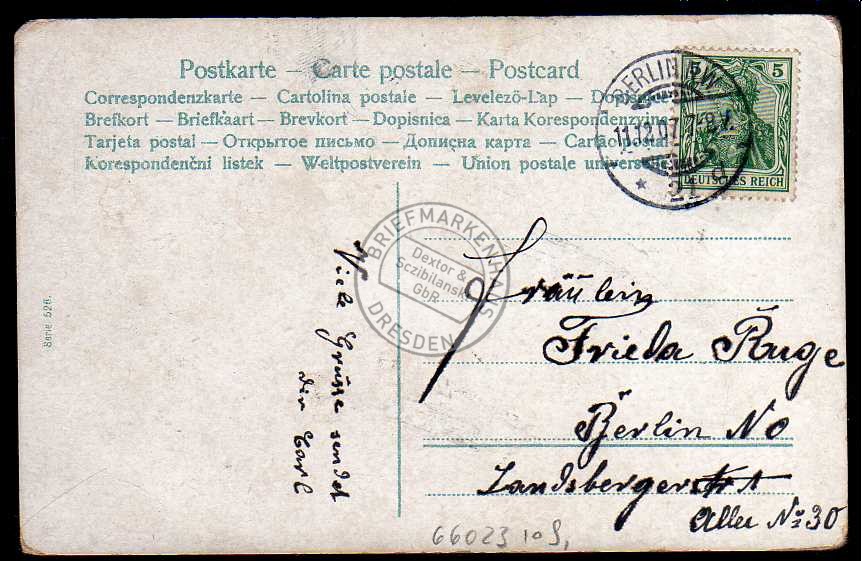 Postkarte — Carte postale — Postcard
Correspondenzkarte - Cartolina postale - Levelező-Lap - Dopis
Brefkort - Briefkaart - Brevkort - Dopisnica - Karta Korespondenzyjna
Tarjeta postal - Открытое письмо - Дописна карта - Cartao postal
Korespondenční listek - Weltpostverein - Union postale univers
BERLIN NW
11.12.07. 7-8 V.
* 21 g
5 5
DEUTSCHES REICH
BRIEFMARKENHAUS
Dextor &
Sczibilanski
GbR
DRESDEN
Serie 526.
Viele Grüsse sendet
dir Carl
Fräulein
Frieda Ruge
Berlin No
Landsberger
Allee No 30
66023 10